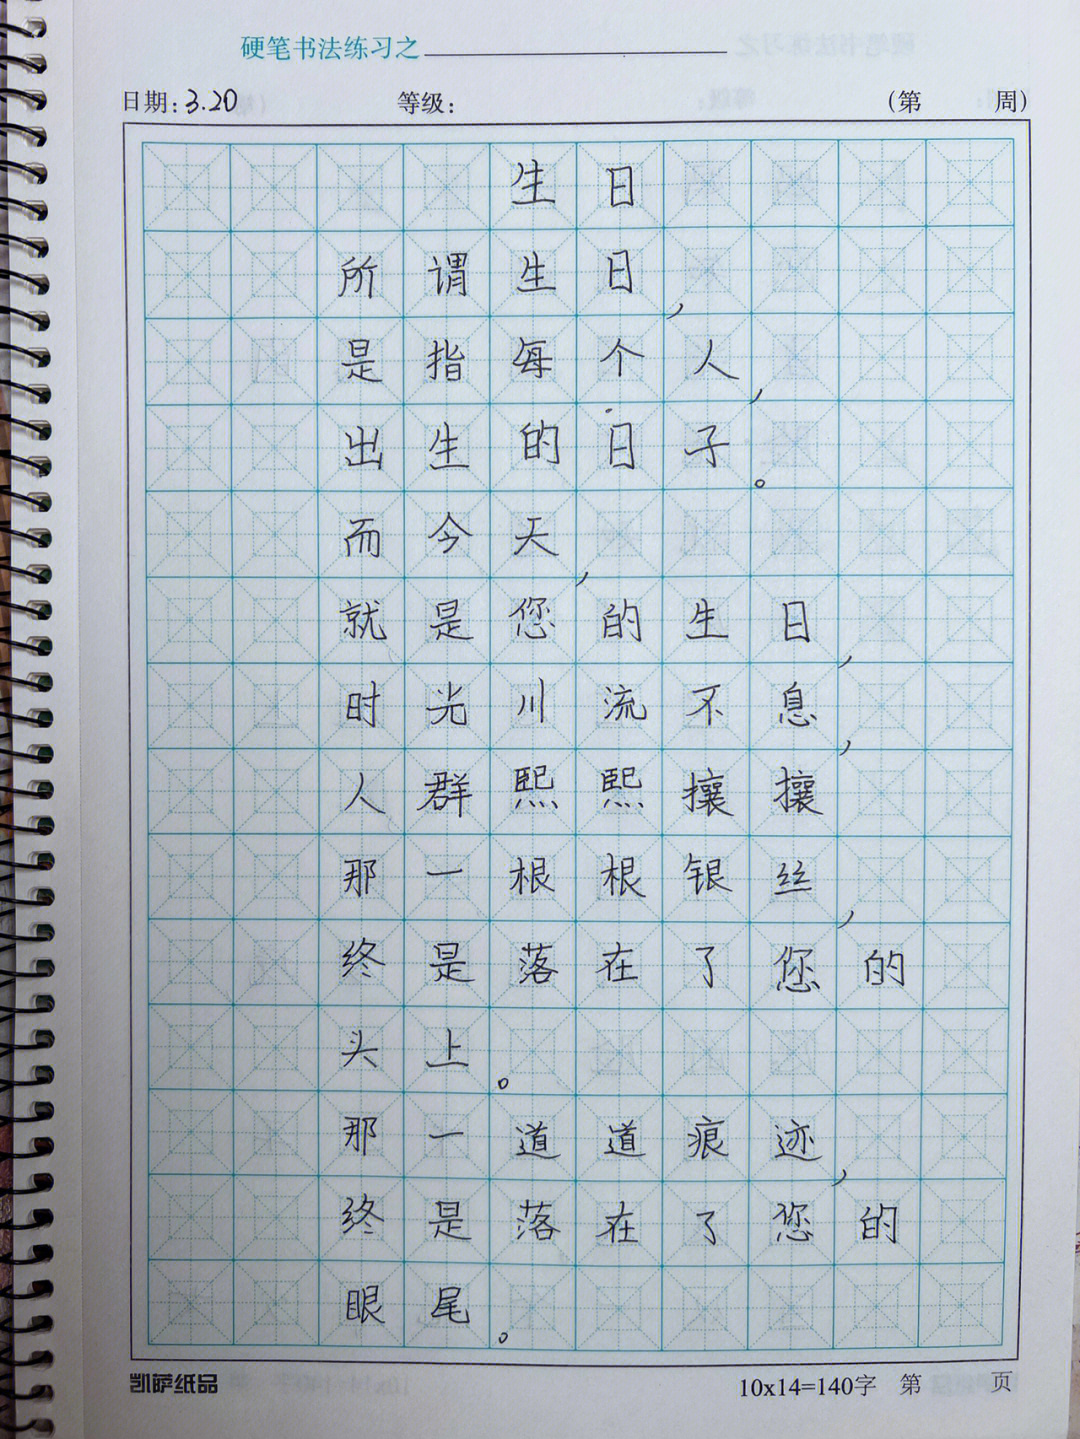 硬笔书法练习之
日期:3.20 等级: (第 周)
生日
所谓生日,
是指每个人,
出生的日子。
而今天,
就是您的生日,
时光川流不息,
人群熙熙攘攘
那一根根银丝,
终是落在了您的
头上。
那一道道痕迹,
终是落在了您的
眼尾。
凯萨纸品 10x14=140字 第 页